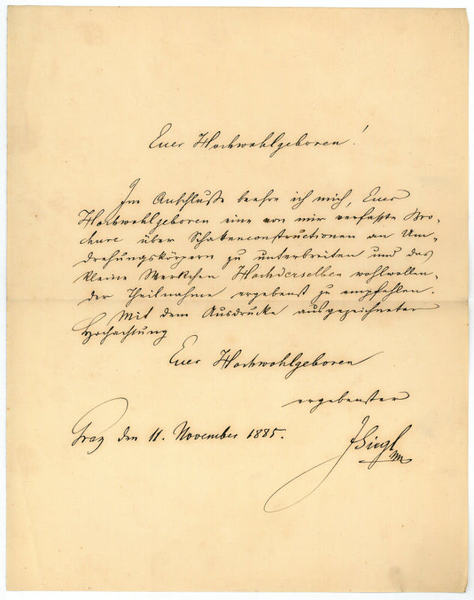 Euer Hochwohlgeboren!
Im Anschluße beehre ich mich, Euer
Hochwohlgeboren eine von mir verfaßte Bro-
chure über Schattenconstructionen an Um-
drehungskörpern zu unterbreiten und das
kleine Werkchen Hochderselben wohlwollen-
der Theilnahme ergebenst zu empfehlen.
Mit dem Ausdrucke ausgezeichneter
Hochachtung
Euer Hochwohlgeboren
ergebenster
Graz den 11. November 1885.
JSiegl